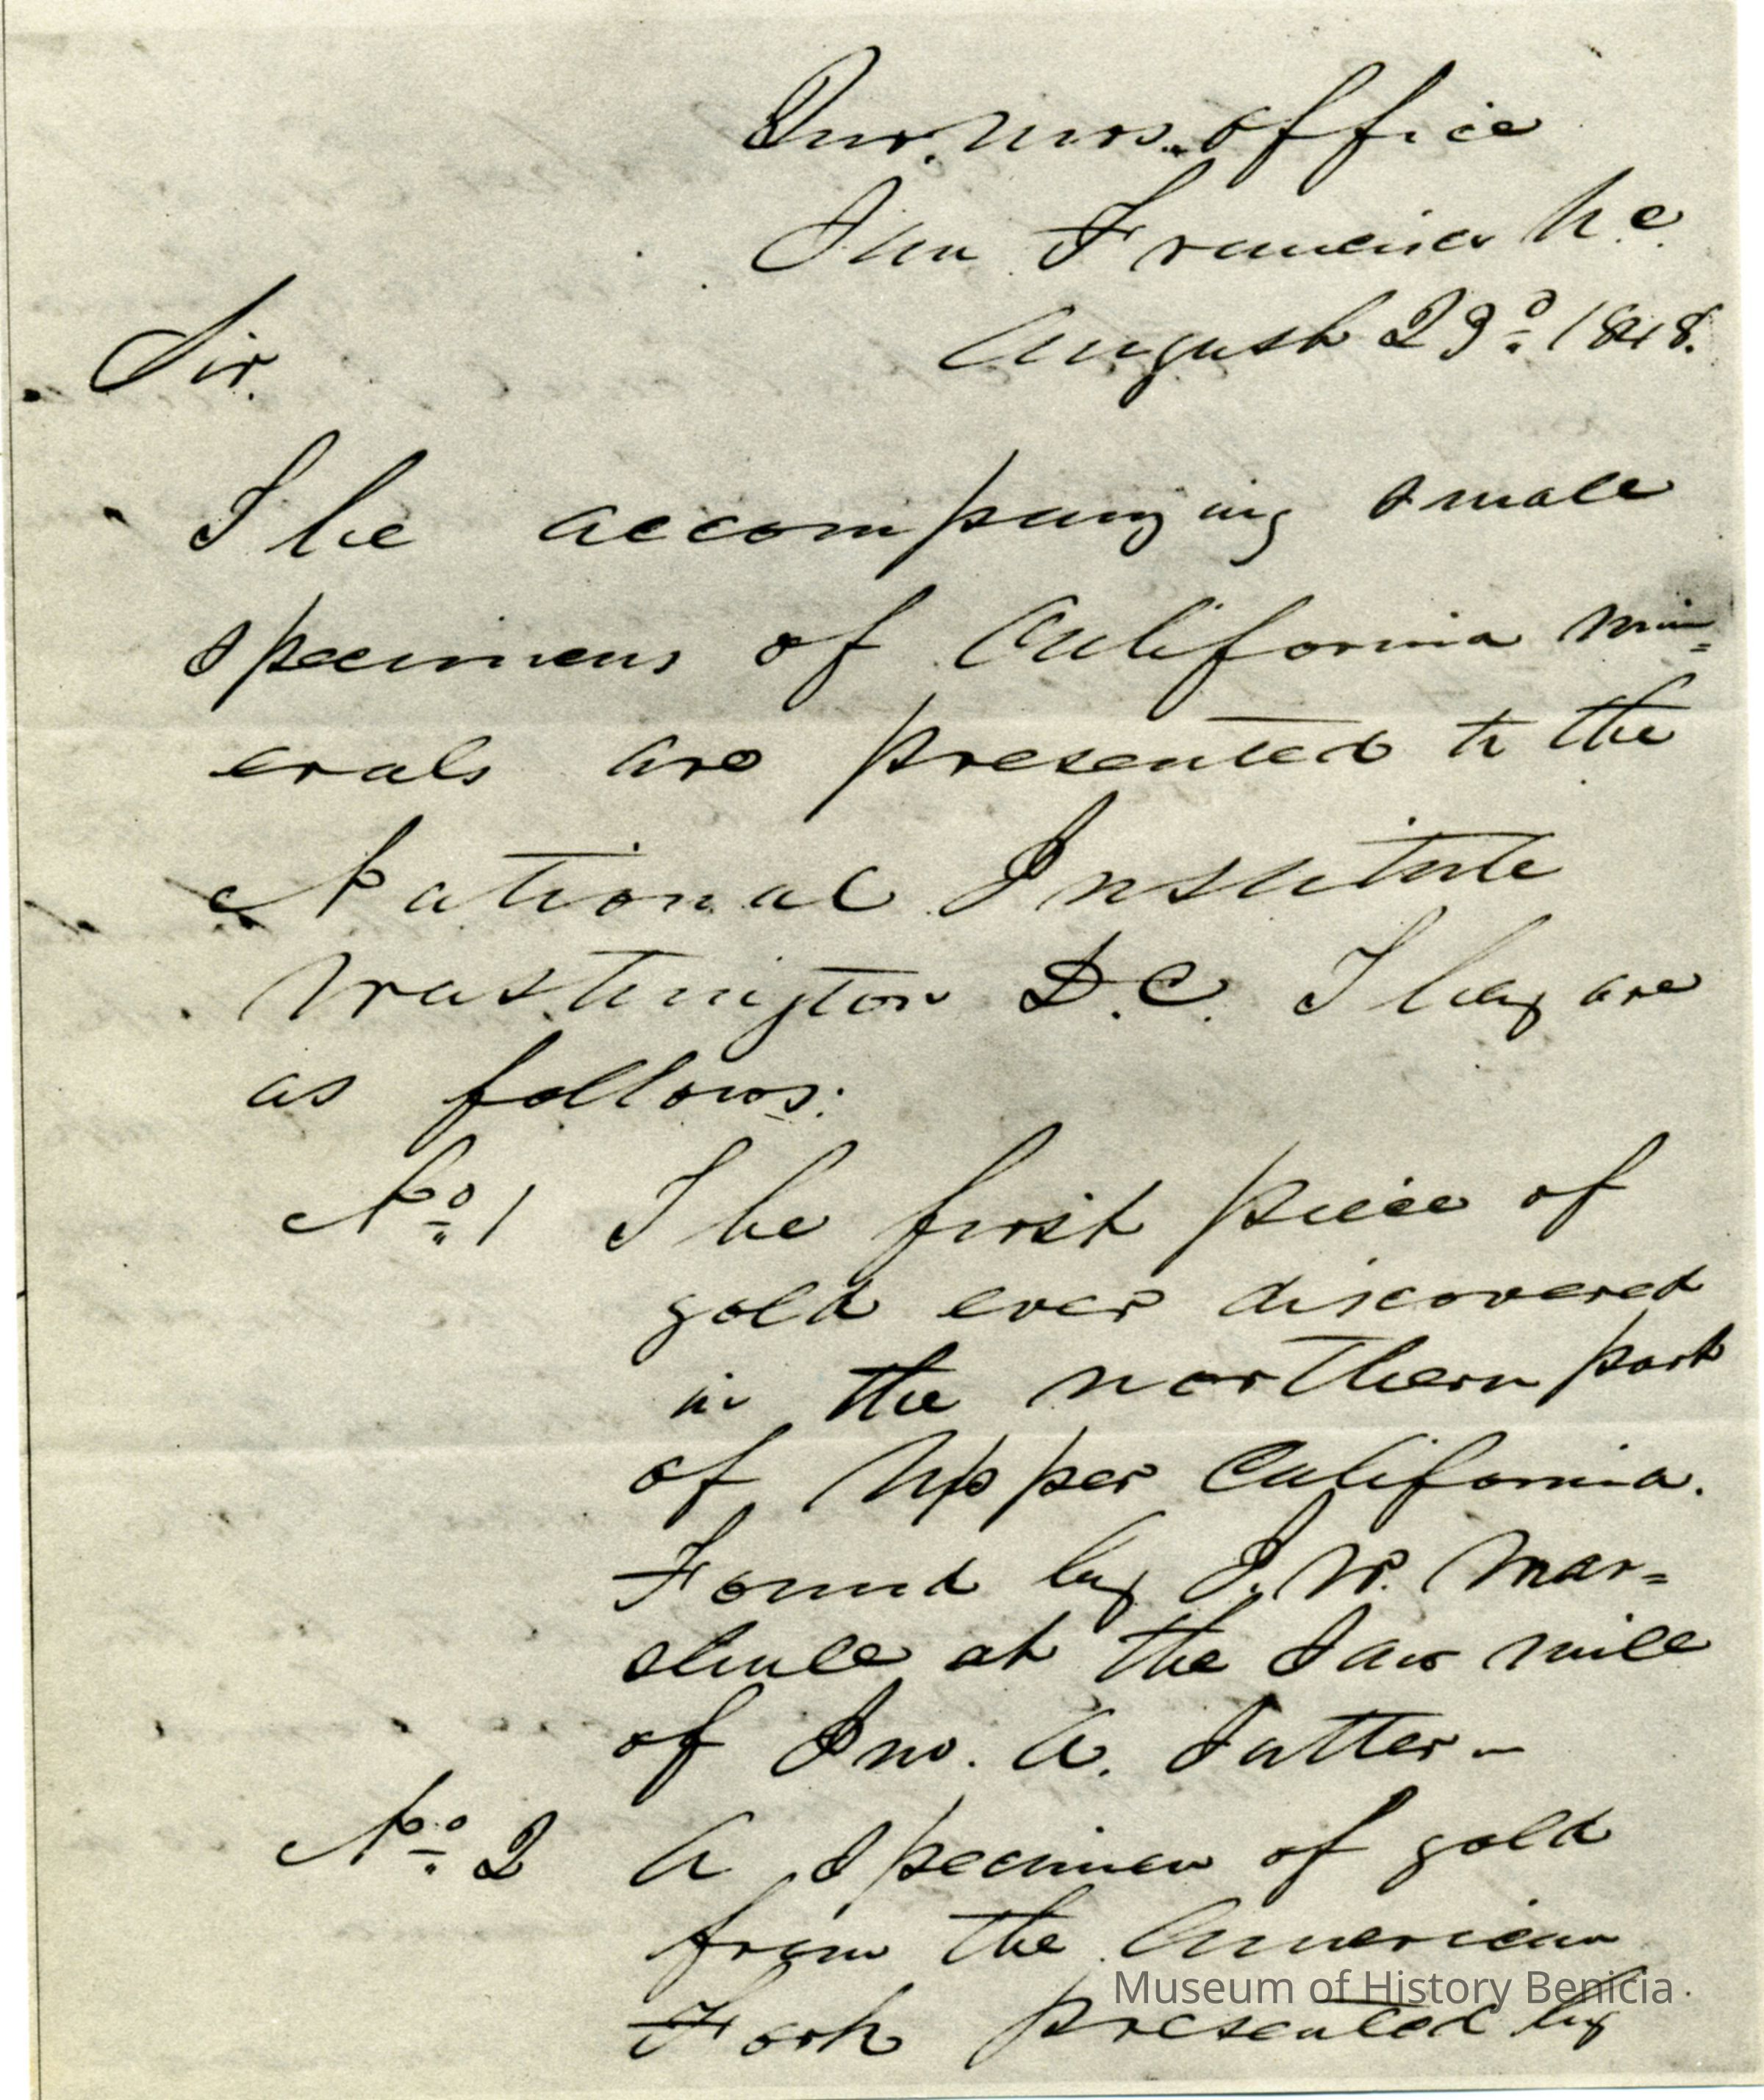 Qur. Mrs. office
San Francisco U.C.
August 23º 1848.
Sir.
The accompanying small
specimens of California min=
erals are presented to the
National Institute
Washington D.C. They are
as follows:
Nº 1 The first piece of
gold ever discovered
in the northern part
of Upper California.
Found by J. W. Mar=
shall at the Saw mill
of Jno. A. Sutter -
Nº 2 A Specimen of gold
from the American
Fork presented by
Museum of History Benicia